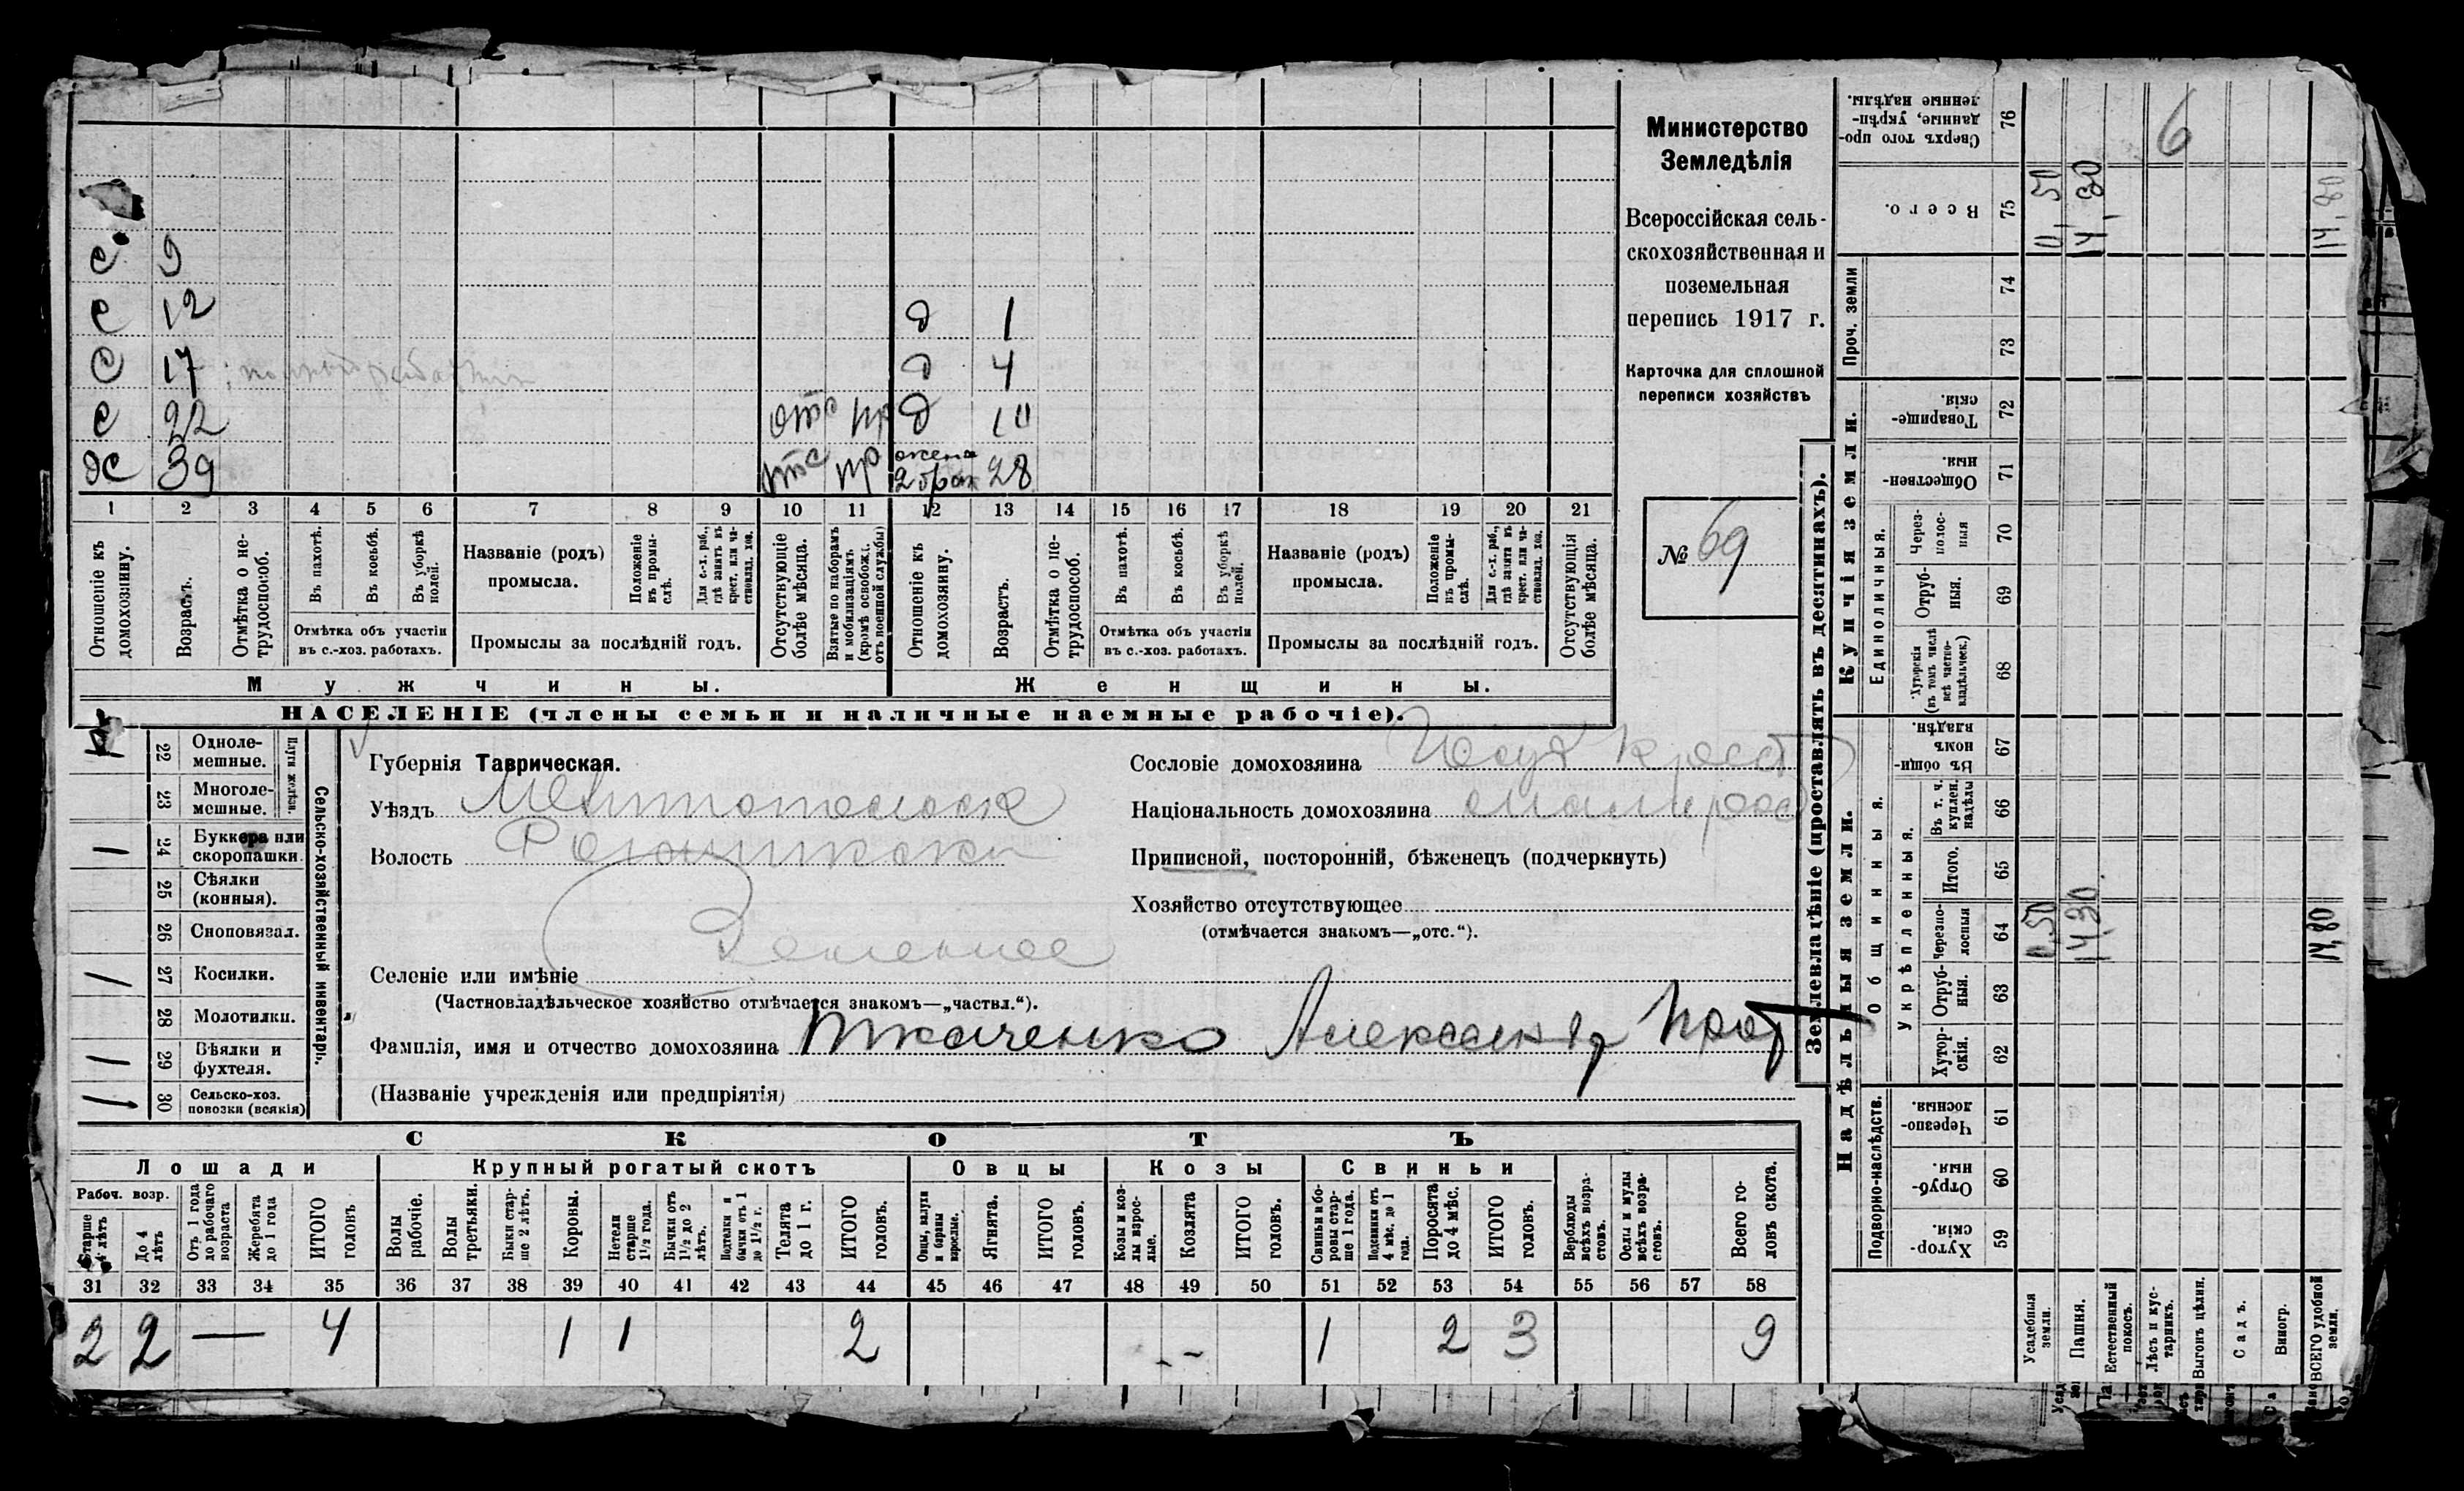 Министерство
Земледѣлія
Всероссійская сель-
скохозяйственная и
поземельная
перепись 1917 г.
Карточка для сплошной
переписи хозяйствъ
№ 69
с 9
с 12 д 1
с 17 д 4
с 22 отс пр д 10
дс 39 отс пр жена 2 брак 28
1 2 3 4 5 6 7 8 9 10 11 12 13 14 15 16 17 18 19 20 21
Отношеніе къ домохозяину.
Возрастъ.
Отмѣтка о не-трудоспособ.
Въ пахотѣ.
Въ косьбѣ.
Въ уборкѣ полей.
Отмѣтка объ участіи
въ с.-хоз. работахъ.
Названіе (родъ)
промысла.
Положеніе въ промы-слѣ.
Для с.-х. раб., гдѣ занятъ въ крест. или ча-стновлад. хоз.
Промыслы за послѣдній годъ.
Отсутствующіе болѣе мѣсяца.
Взятые по наборамъ и мобилизаціямъ (кромѣ освобожд. отъ военной службы)
Отношеніе къ домохозяину.
Возрастъ.
Отмѣтка о не-трудоспособ.
Въ пахотѣ.
Въ косьбѣ.
Въ уборкѣ полей.
Отмѣтка объ участіи
въ с.-хоз. работахъ.
Названіе (родъ)
промысла.
Положеніе въ промы-слѣ.
Для с.-х. раб., гдѣ занята въ крест. или ча-стновлад. хоз.
Промыслы за послѣдній годъ.
Отсутствующія болѣе мѣсяца.
Мужчины.
Женщины.
НАСЕЛЕНІЕ (члены семьи и наличные наемные рабочіе).
Сельско-хозяйственный инвентарь.
Плуги желѣзн.
22 Одноле-мешные. 1
23 Многоле-мешные.
24 Буккера или скоропашки. 1
25 Сѣялки (конныя).
26 Сноповязал.
27 Косилки. 1
28 Молотилки.
29 Вѣялки и фухтеля. 1
30 Сельско-хоз. повозки (всякія) 1
Губернія Таврическая.
Уѣздъ Мелитопольск
Волость
Селеніе или имѣніе Зеленое
(Частновладѣльческое хозяйство отмѣчается знакомъ—„частвл.“).
Фамилія, имя и отчество домохозяина Ткаченко Александр
(Названіе учрежденія или предпріятія)
Сословіе домохозяина крест
Національность домохозяина малорос
Приписной, посторонній, бѣженецъ (подчеркнуть)
Хозяйство отсутствующее
(отмѣчается знакомъ—„отс.“).
СКОТЪ
Лошади
Крупный рогатый скотъ
Овцы
Козы
Свиньи
Рабоч. возр.
Старше 4 лѣтъ
До 4 лѣтъ
Отъ 1 года до рабочаго возраста
Жеребята до 1 года
ИТОГО головъ
Волы рабочіе.
Волы третьяки.
Быки стар-ше 2 лѣтъ.
Коровы.
Нетели старше 1½ года.
Бычки отъ 1½ до 2 лѣтъ.
Подтелки и бычки отъ 1 до 1½ г.
Телята до 1 г.
ИТОГО головъ.
Овцы, валухи и бараны взрослые.
Ягнята.
ИТОГО головъ.
Козы и коз-лы взрос-лые.
Козлята
ИТОГО головъ.
Свиньи и бо-ровы стар-ше 1 года.
Подсвинки отъ 4 мѣс. до 1 года.
Поросята до 4 мѣс.
ИТОГО головъ.
Верблюды всѣхъ возра-стовъ.
Ослы и мулы всѣхъ возра-стовъ.
Всего го-ловъ скота.
31 32 33 34 35 36 37 38 39 40 41 42 43 44 45 46 47 48 49 50 51 52 53 54 55 56 57 58
2 2 — 4 1 1 2 - - 1 2 3 9
Землевладѣніе (проставлять въ десятинахъ).
Надѣльныя земли.
Купчія земли.
Проч. земли
Подворно-наслѣдств.
Общинныя.
Укрѣпленныя.
Единоличныя.
59 Хутор-скія.
60 Отруб-ныя.
61 Черезпо-лосныя.
62 Хутор-скія.
63 Отруб-ныя.
64 Черезпо-лосныя
65 Итого.
66 Въ т. ч. куплен. надѣлы
67 Въ общи-номъ владѣн.
68 Хуторскія (въ томъ числѣ всѣ частно-владѣльческ.)
69 Отруб-ныя.
70 Через-полос-ныя
71 Обществен-ныя.
72 Товарище-скія.
73
74
75 Всего.
76 Сверхъ того про-данные, укрѣп-ленные надѣлы.
6
Усадебныя земли. 0,50 0,50
Пашня. 14,30 14,30
Естественный покосъ.
Лѣсъ и кус-тарникъ.
Выгонъ цѣлин.
Садъ.
Виногр.
ВСЕГО удобной земли. 14,80 14,80